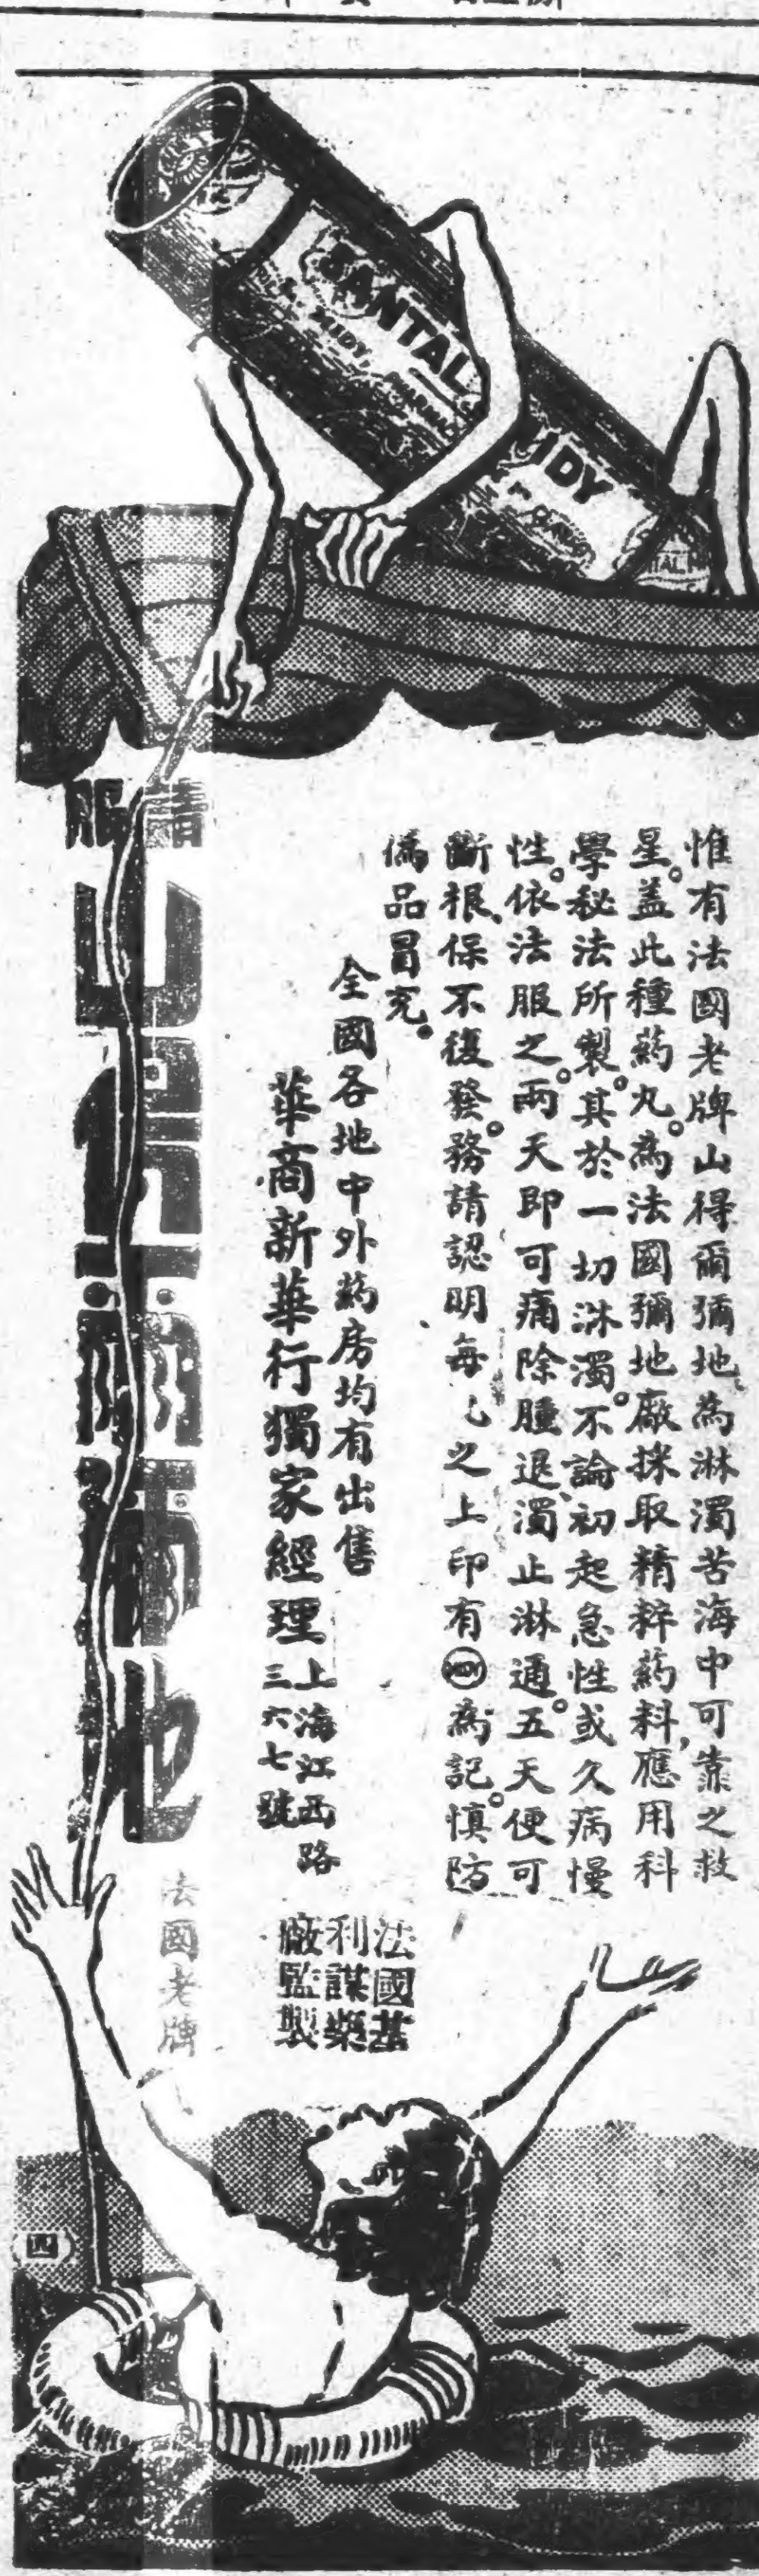 SANTAL MIDY
惟有法國老牌山得爾彌地、為淋濁苦海中可靠之救
星。蓋此種藥丸。為法國彌地廠採取精粹葯料、應用科
學秘法所製。其於一切淋濁。不論初起急性或久病慢
性。依法服之。兩天即可痛除腫退、濁止淋通。五天便可
斷根、保不復發。務請認明每丸之上印有MIDY為記。慎防
偽品冒充。
全國各地中外葯房均有出售
華商新華行獨家經理
上海江西路
三六七號
法國基
利謀藥
廠監製
請服
山得爾彌地
法國老牌
四